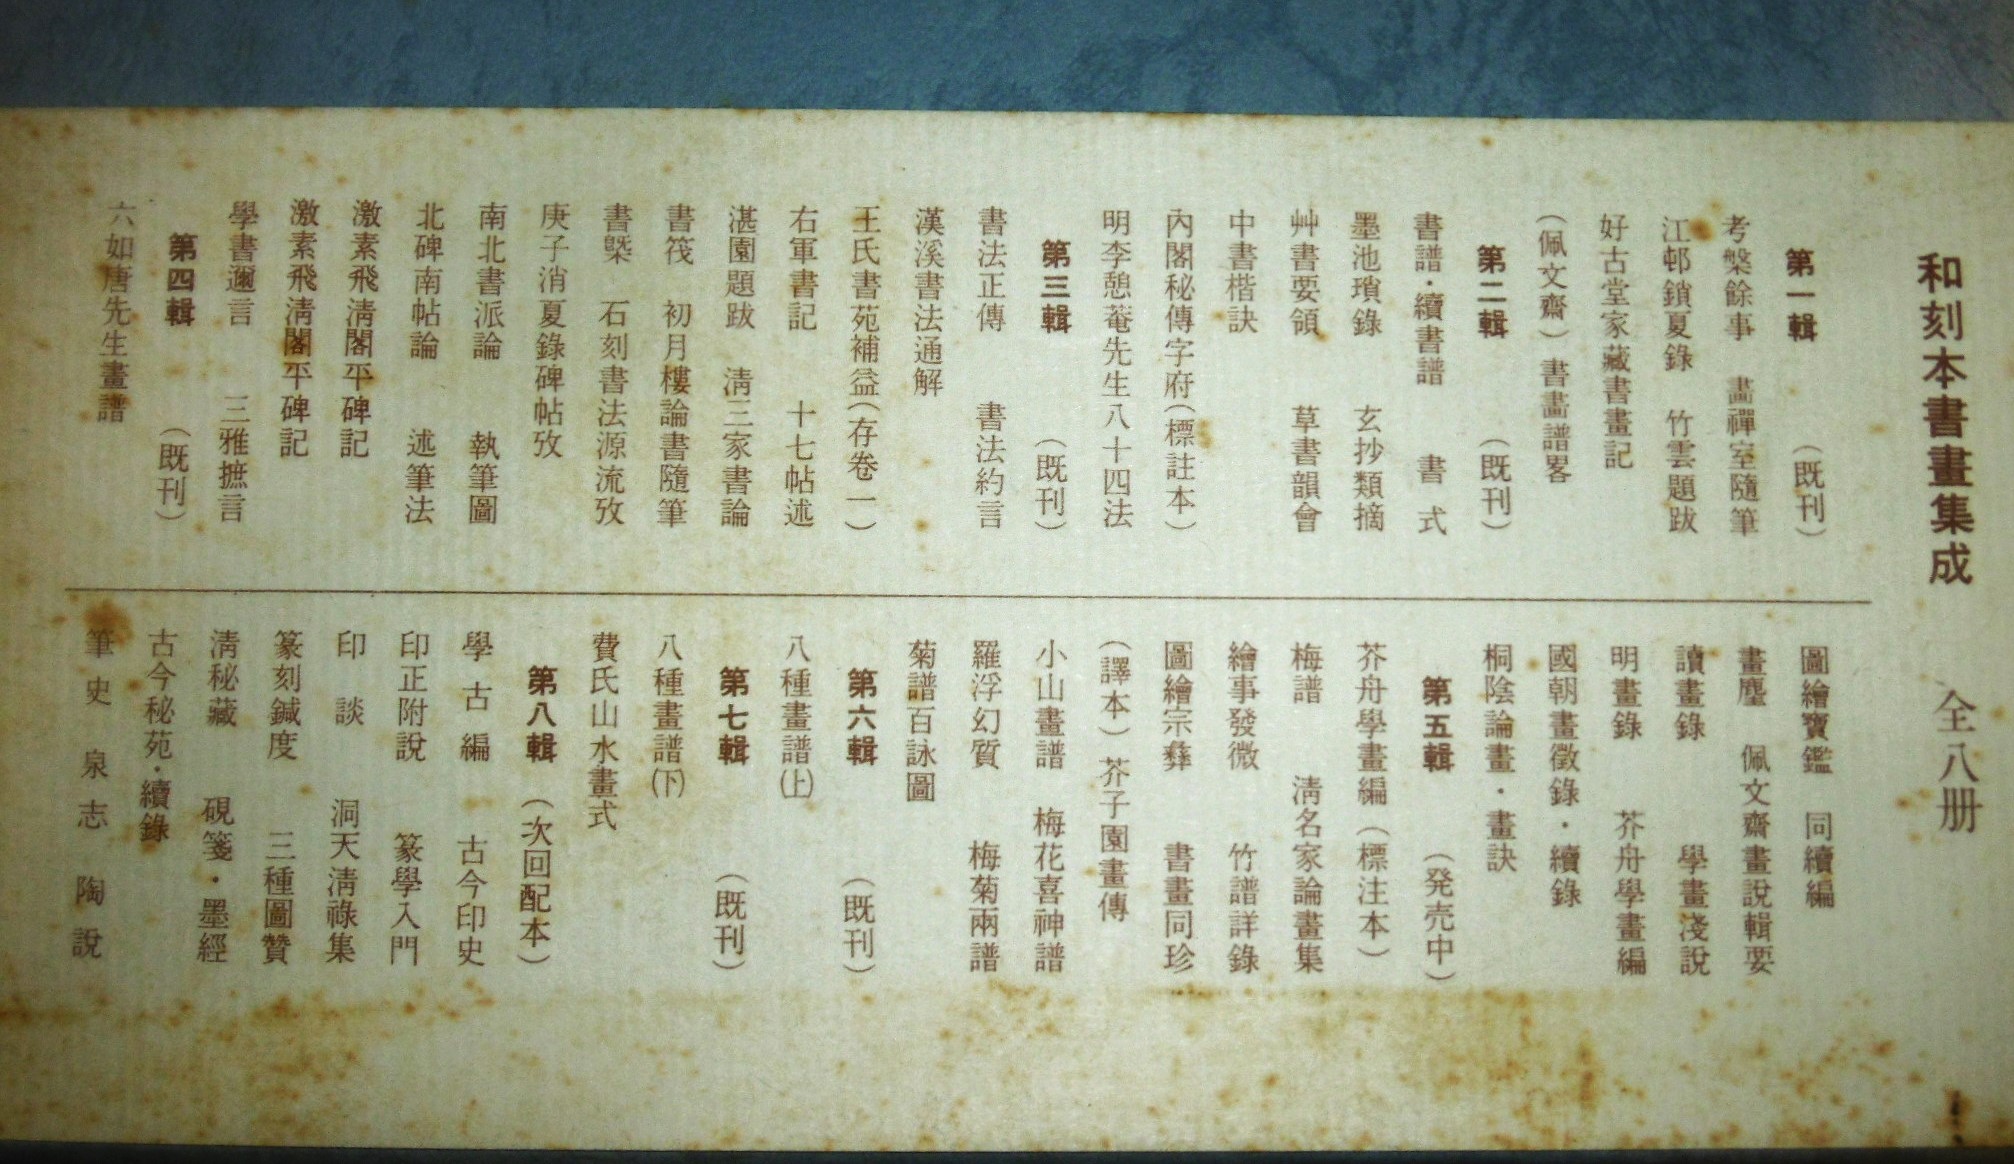 和刻本書畫集成　全八册
第一輯　（既刊）
考槃餘事　畵禪室隨筆
江邨銷夏錄　竹雲題跋
好古堂家藏書畫記
（佩文齋）書畵譜畧
第二輯　（既刊）
書譜・續書譜　書式
墨池瑣錄　玄抄類摘
艸書要領　草書韻會
中書楷訣
內閣秘傳字府（標註本）
明李憩菴先生八十四法
第三輯　（既刊）
書法正傳　書法約言
漢溪書法通解
王氏書苑補益（存卷一）
右軍書記　十七帖述
湛園題跋　淸三家書論
書筏　初月樓論書隨筆
書槩　石刻書法源流攷
庚子消夏錄碑帖攷
南北書派論　執筆圖
北碑南帖論　述筆法
激素飛淸閣平碑記
激素飛淸閣平碑記
學書邇言　三雅摭言
第四輯　（既刊）
六如唐先生畫譜
圖繪寶鑑　同續編
畫麈　佩文齋畫說輯要
讀畫錄　學畫淺說
明畫錄　芥舟學畫編
國朝畫徵錄・續錄
桐陰論畫・畫訣
第五輯　（発売中）
芥舟學畫編（標注本）
梅譜　淸名家論畫集
繪事發微　竹譜詳錄
圖繪宗彝　書畫同珍
（譯本）芥子園畫傳
小山畫譜　梅花喜神譜
羅浮幻質　梅菊兩譜
菊譜百詠圖
第六輯　（既刊）
八種畫譜(上)
第七輯　（既刊）
八種畫譜(下)
費氏山水畫式
第八輯　（次回配本）
學古編　古今印史
印正附說　篆學入門
印談　洞天淸祿集
篆刻鍼度　三種圖贊
淸秘藏　硯箋・墨經
古今秘苑・續錄
筆史　泉志　陶說